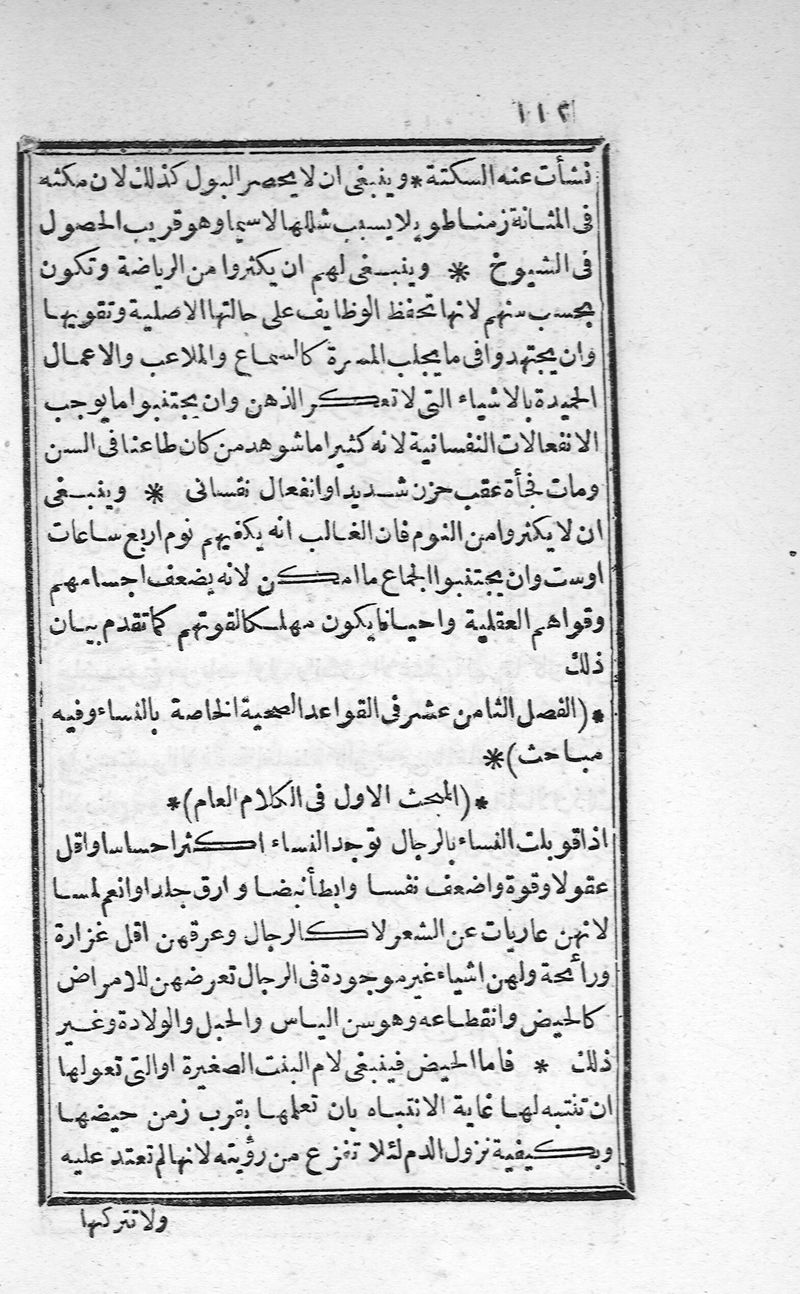 ١١٢
نشأت عنه السكتة * وينبغى ان لا يحصر البول كذلك لان مكثه
فى المثانة زمنا طويلا يسبب شللها لاسيما وهو قريب الحصول
فى الشيوخ * وينبغى لهم ان يكثروا من الرياضة وتكون
بحسب سنهم لانها تحفظ الوظايف على حالتها الاصلية وتقويها
وان يجتهدوا فى ما يجلب المسرة كالسماع والملاعب والاعمال
الحميدة بالاشياء التى لا تعكر الذهن وان يجتنبوا ما يوجب
الانفعالات النفسانية لانه كثيرا ما شوهد من كان طاعنا فى السن
ومات فجأة عقب حزن شديد او انفعال نفسانى * وينبغى
ان لا يكثروا من النوم فان الغالب انه يكفيهم نوم اربع ساعات
اوست وان يجتنبوا الجماع ما امكن لانه يضعف اجسامهم
وقواهم العقلية واحيانا يكون مهلكا لقوتهم كما تقدم بيان
ذلك
*(الفصل الثامن عشر فى القواعد الصحية الخاصة بالنساء وفيه
مباحث)*
*(المبحث الاول فى الكلام العام)*
اذا قوبلت النساء بالرجال توجد النساء اكثر احساسا واقل
عقولا وقوة واضعف نفسا وابطأ نبضا وارق جلدا وانعم لمسا
لانهن عاريات عن الشعر لا كالرجال وعرقهن اقل غزارة
ورائحة ولهن اشياء غير موجودة فى الرجال تعرضهن للامراض
كالحيض وانقطاعه وهو سن الياس والحبل والولادة وغير
ذلك * فاما الحيض فينبغى لام البنت الصغيرة او التى تعولها
ان تنتبه لها غاية الانتباه بان تعلمها بقرب زمن حيضها
وبكيفية نزول الدم لئلا تفزع من رؤيته لانها لم تعتد عليه
ولا تتركها